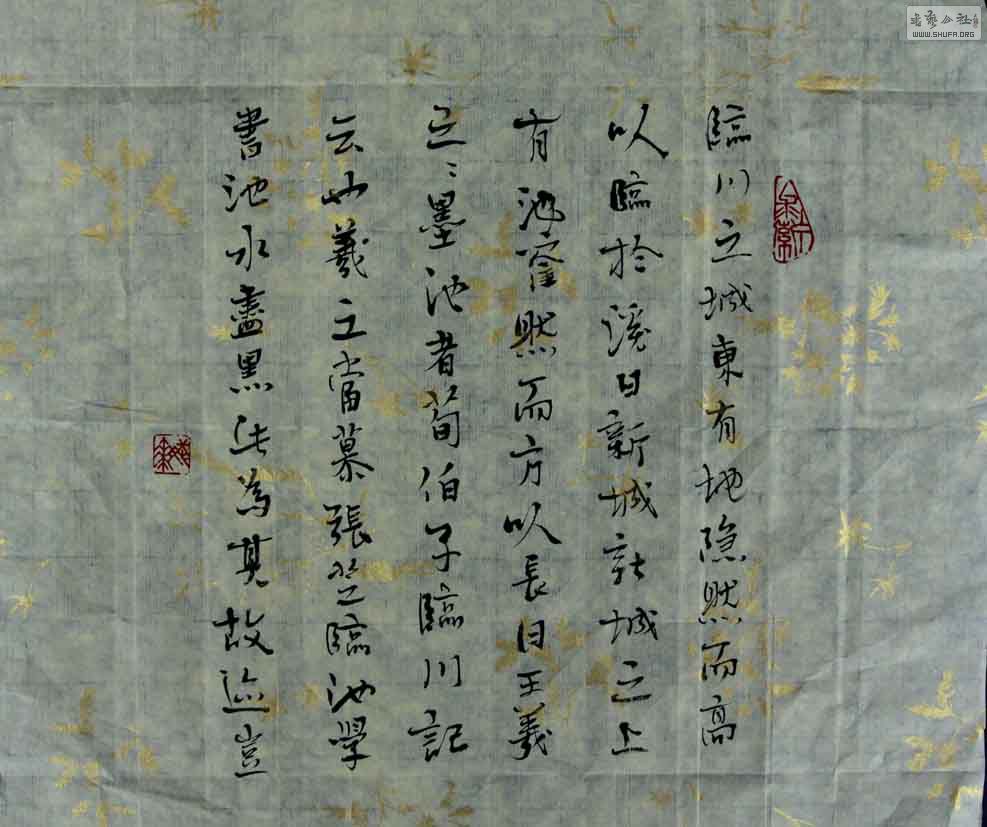 臨川之城東有地隐然而高
以臨於溪曰新城新城之上
有池窪然而方以長曰王羲
之之墨池者荀伯子臨川記
云也羲之嘗慕張芝臨池學
書池水盡黑此為其故迹豈
書藝公社
WWW.SHUFA.ORG